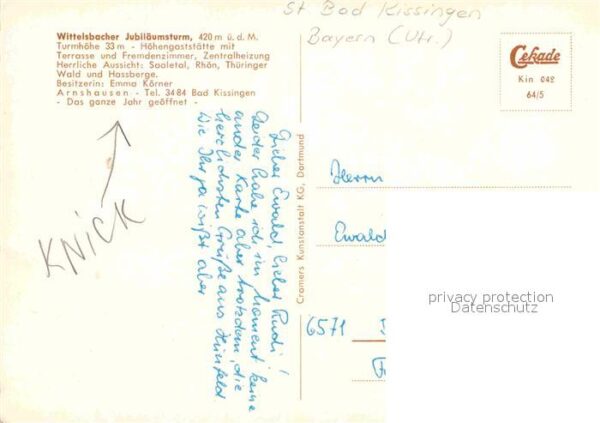 St Bad Kissingen
Bayern (Ufr.)
Wittelsbacher Jubiläumsturm, 420 m ü. d. M.
Turmhöhe 33 m - Höhengaststätte mit
Terrasse und Fremdenzimmer, Zentralheizung
Herrliche Aussicht: Saaletal, Rhön, Thüringer
Wald und Hassberge.
Besitzerin: Emma Körner
Arnshausen - Tel. 3484 Bad Kissingen
- Das ganze Jahr geöffnet -
Cekade
Kin 042
64/5
KNICK
Lieber Ewald, lieber Rudi!
Leider habe ich im Moment keine
ander Karte aber trotzdem, die
herzlichsten Grüße aus Hünfeld.
Wie Ihr ja wißt aber
Cramers Kunstanstalt KG, Dortmund
Herrn
Ewald
6571
privacy protection
Datenschutz